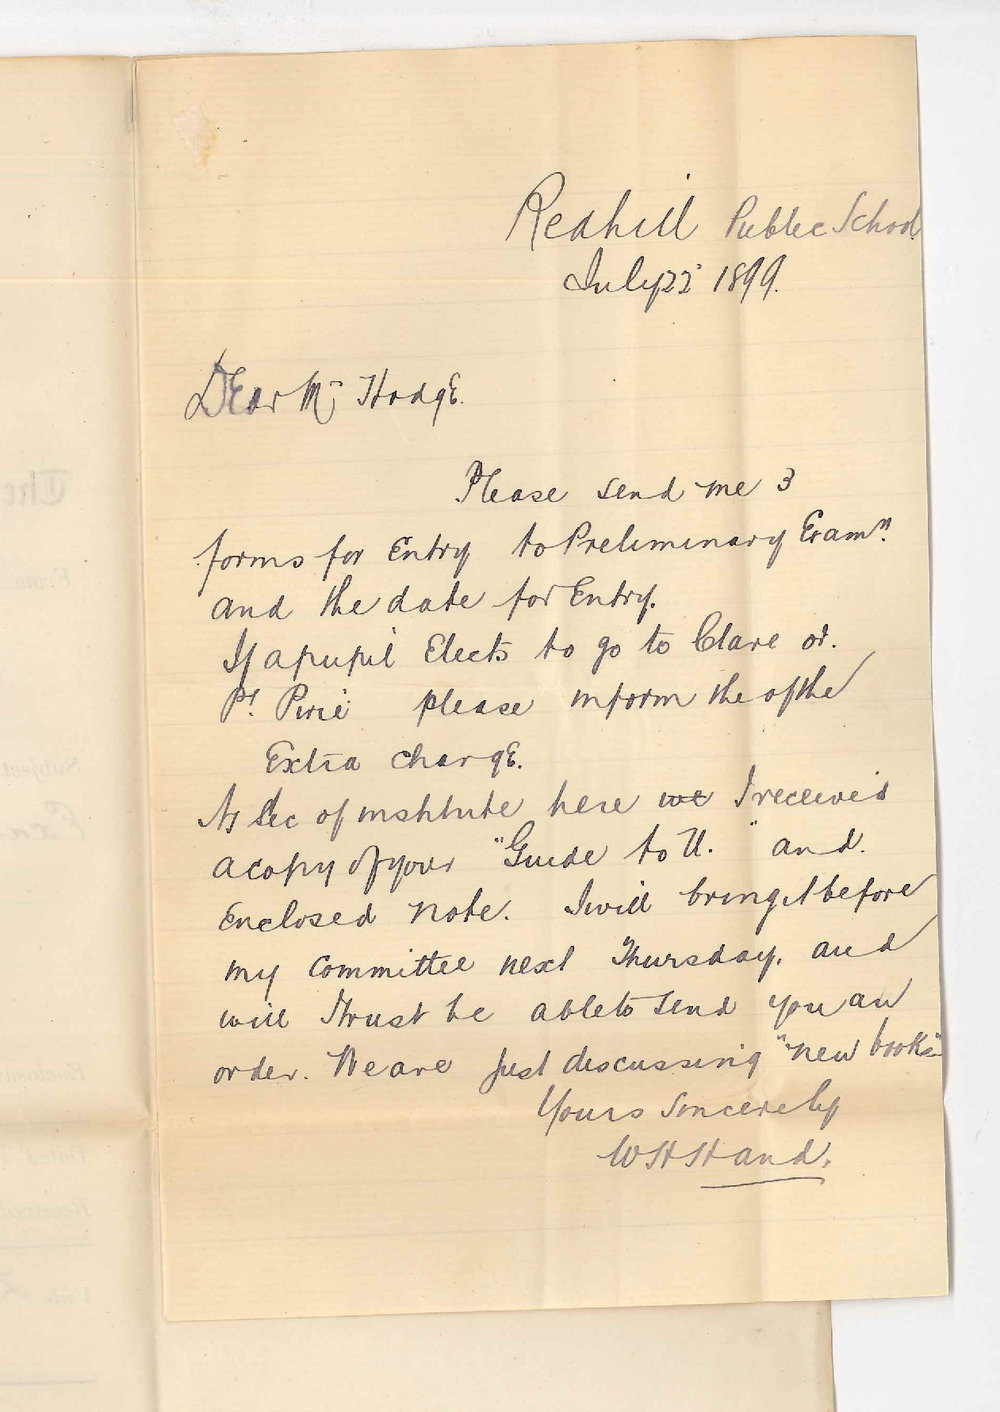 Redhill Public School
July 22 1899.
Dear Mr Hodge.
Please send me 3
forms for Entry to Preliminary Examn.
and the date for Entry.
If a pupil Elects to go to Clare or.
Pt. Pirie please inform the of the
Extra charge.
As Sec of institute here we I received
a copy of your "Guide to U." and
Enclosed note. I will bring it before
my Committee next Thursday, and
will I trust be able to send you an
order. We are just discussing "new books"
Yours Sincerely
W H Hand.
The
From
Subject
Exa